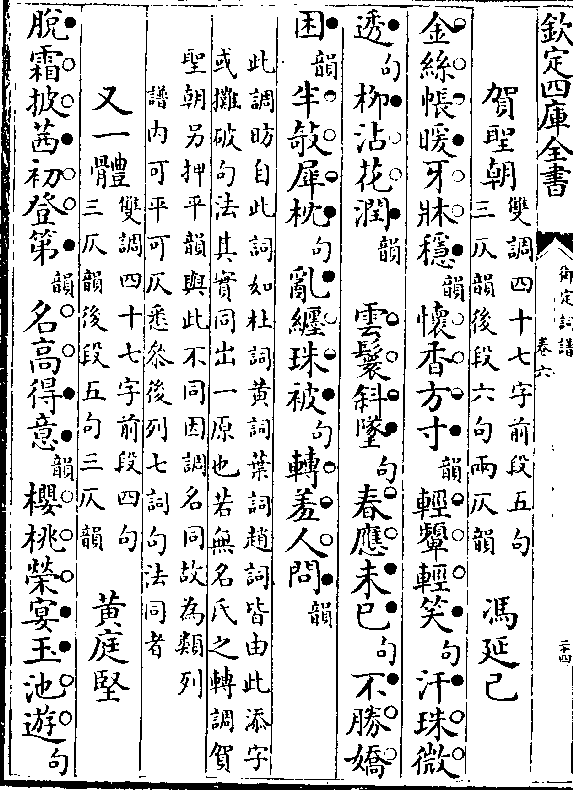 欽定四庫全書
御定詞譜
卷六
二十四
賀聖朝
雙調四十七字前段五句
三仄韻後段六句兩仄韻
馮延己
金絲帳暖牙牀穩韻懷香方寸韻輕顰輕笑句汗珠微
透句柳沾花潤韻 雲鬟斜墜句春應未已句不勝嬌
困韻半敧犀枕句亂纏珠被句轉羞人問韻
此調昉自此詞如杜詞黃詞葉詞趙詞皆由此添字
或攤破句法其實同出一原也若無名氏之轉調賀
聖朝另押平韻與此不同因調名同故為類列
譜内可平可仄悉叅後列七詞句法同者
又一體
雙調四十七字前段四句
三仄韻後段五句三仄韻
黃庭堅
脫霜披茜初登第韻名高得意韻櫻桃榮宴玉池遊句